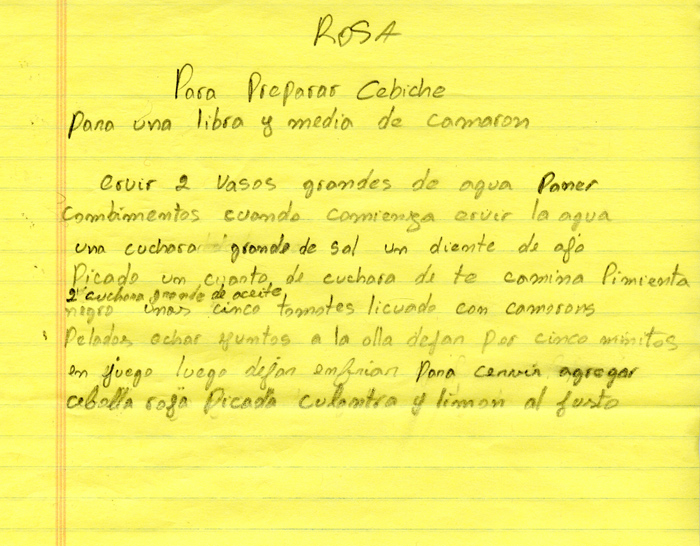 ROSA
Para Preparar Cebiche
para una libra y media de camaron
ervir 2 vasos grandes de agua Poner
combimentos cuando comienza ervir la agua
una cuchara grande de sal un diente de ajo
Picado un cuanto de cuchara de te camina Pimienta
2 cuchara grande de aceite
negro unas cinco tomotes licuado con camarons
Pelados echar juntos a la olla dejan por cinco minitos
en juego luego dejan enfrian para cervir agregar
cebolla roja Picada culantra y limon al justo